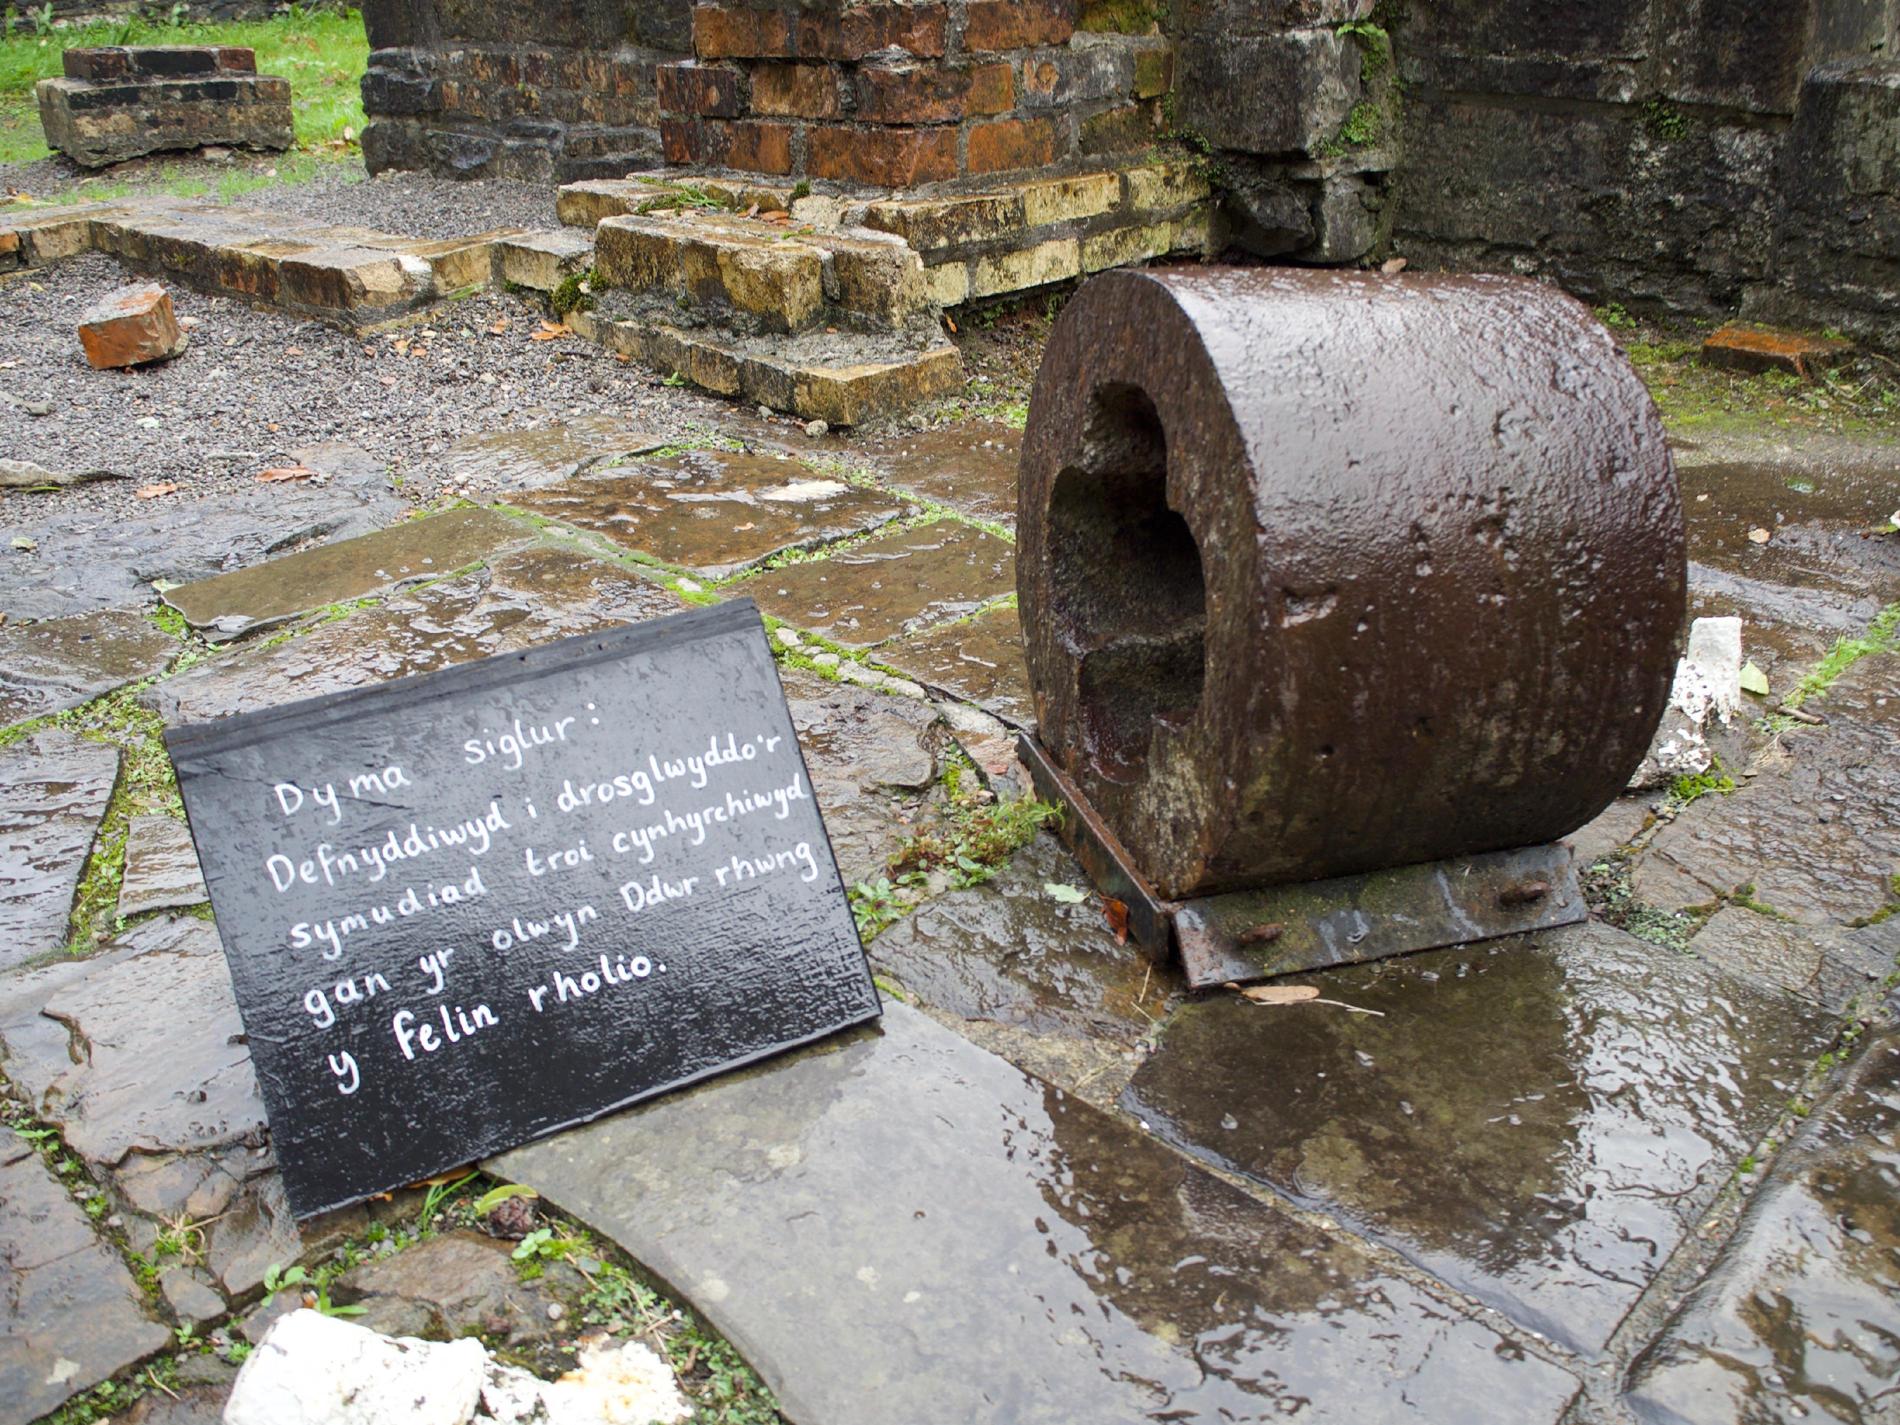 Dyma siglur:
Defnyddiwyd i drosglwyddo'r
symudiad troi cynhyrchiwyd
gan yr olwyn Ddwr rhwng
y felin rholio.